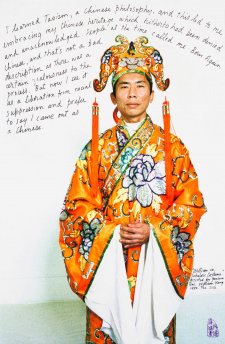 I learned Taoism, a Chinese philosophy, and this led to me
embracing my Chinese heritage which hitherto had been denied
and unacknowledged. People at the time called me Born Again
Chinese, and that's not a bad
description as there was a
certain zealousness to the
process. But now I see it
as a liberation from racial
suppression and prefer
to say I came out as
a Chinese.
William in
Scholar's Costume
William Yang